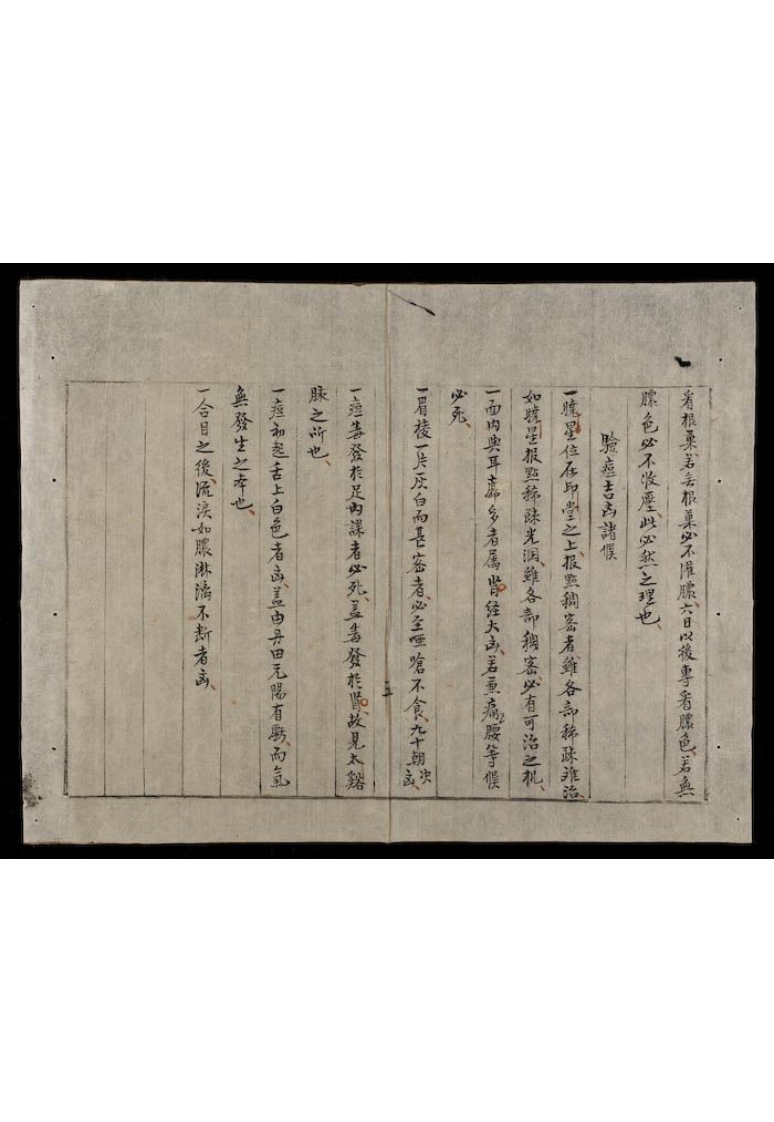 看根窠、若無根窠必不灌膿、六日以後專看膿色、若無
膿色必不收靨、此必然之理也、
驗痘吉凶諸候
一曉星位在印堂之上、报點稠密者雖各部稀疎难治、
如曉星报點稀疎光润、雖各部稠密、必有可治之机、
一面内與耳部多者属腎经大凶、若兼痛腰等候
必死、
一眉棱一片灰白而甚密者、必至啞嗆不食、九十朝决凶、
一痘毒發於足内踝者必死、盖毒發於腎、故見太谿
脉之所也、
一痘初起舌上白色者凶、盖由丹田元陽有虧、而氣
無發生之本也、
一合目之後、流淚如膿淋漓不断者凶、